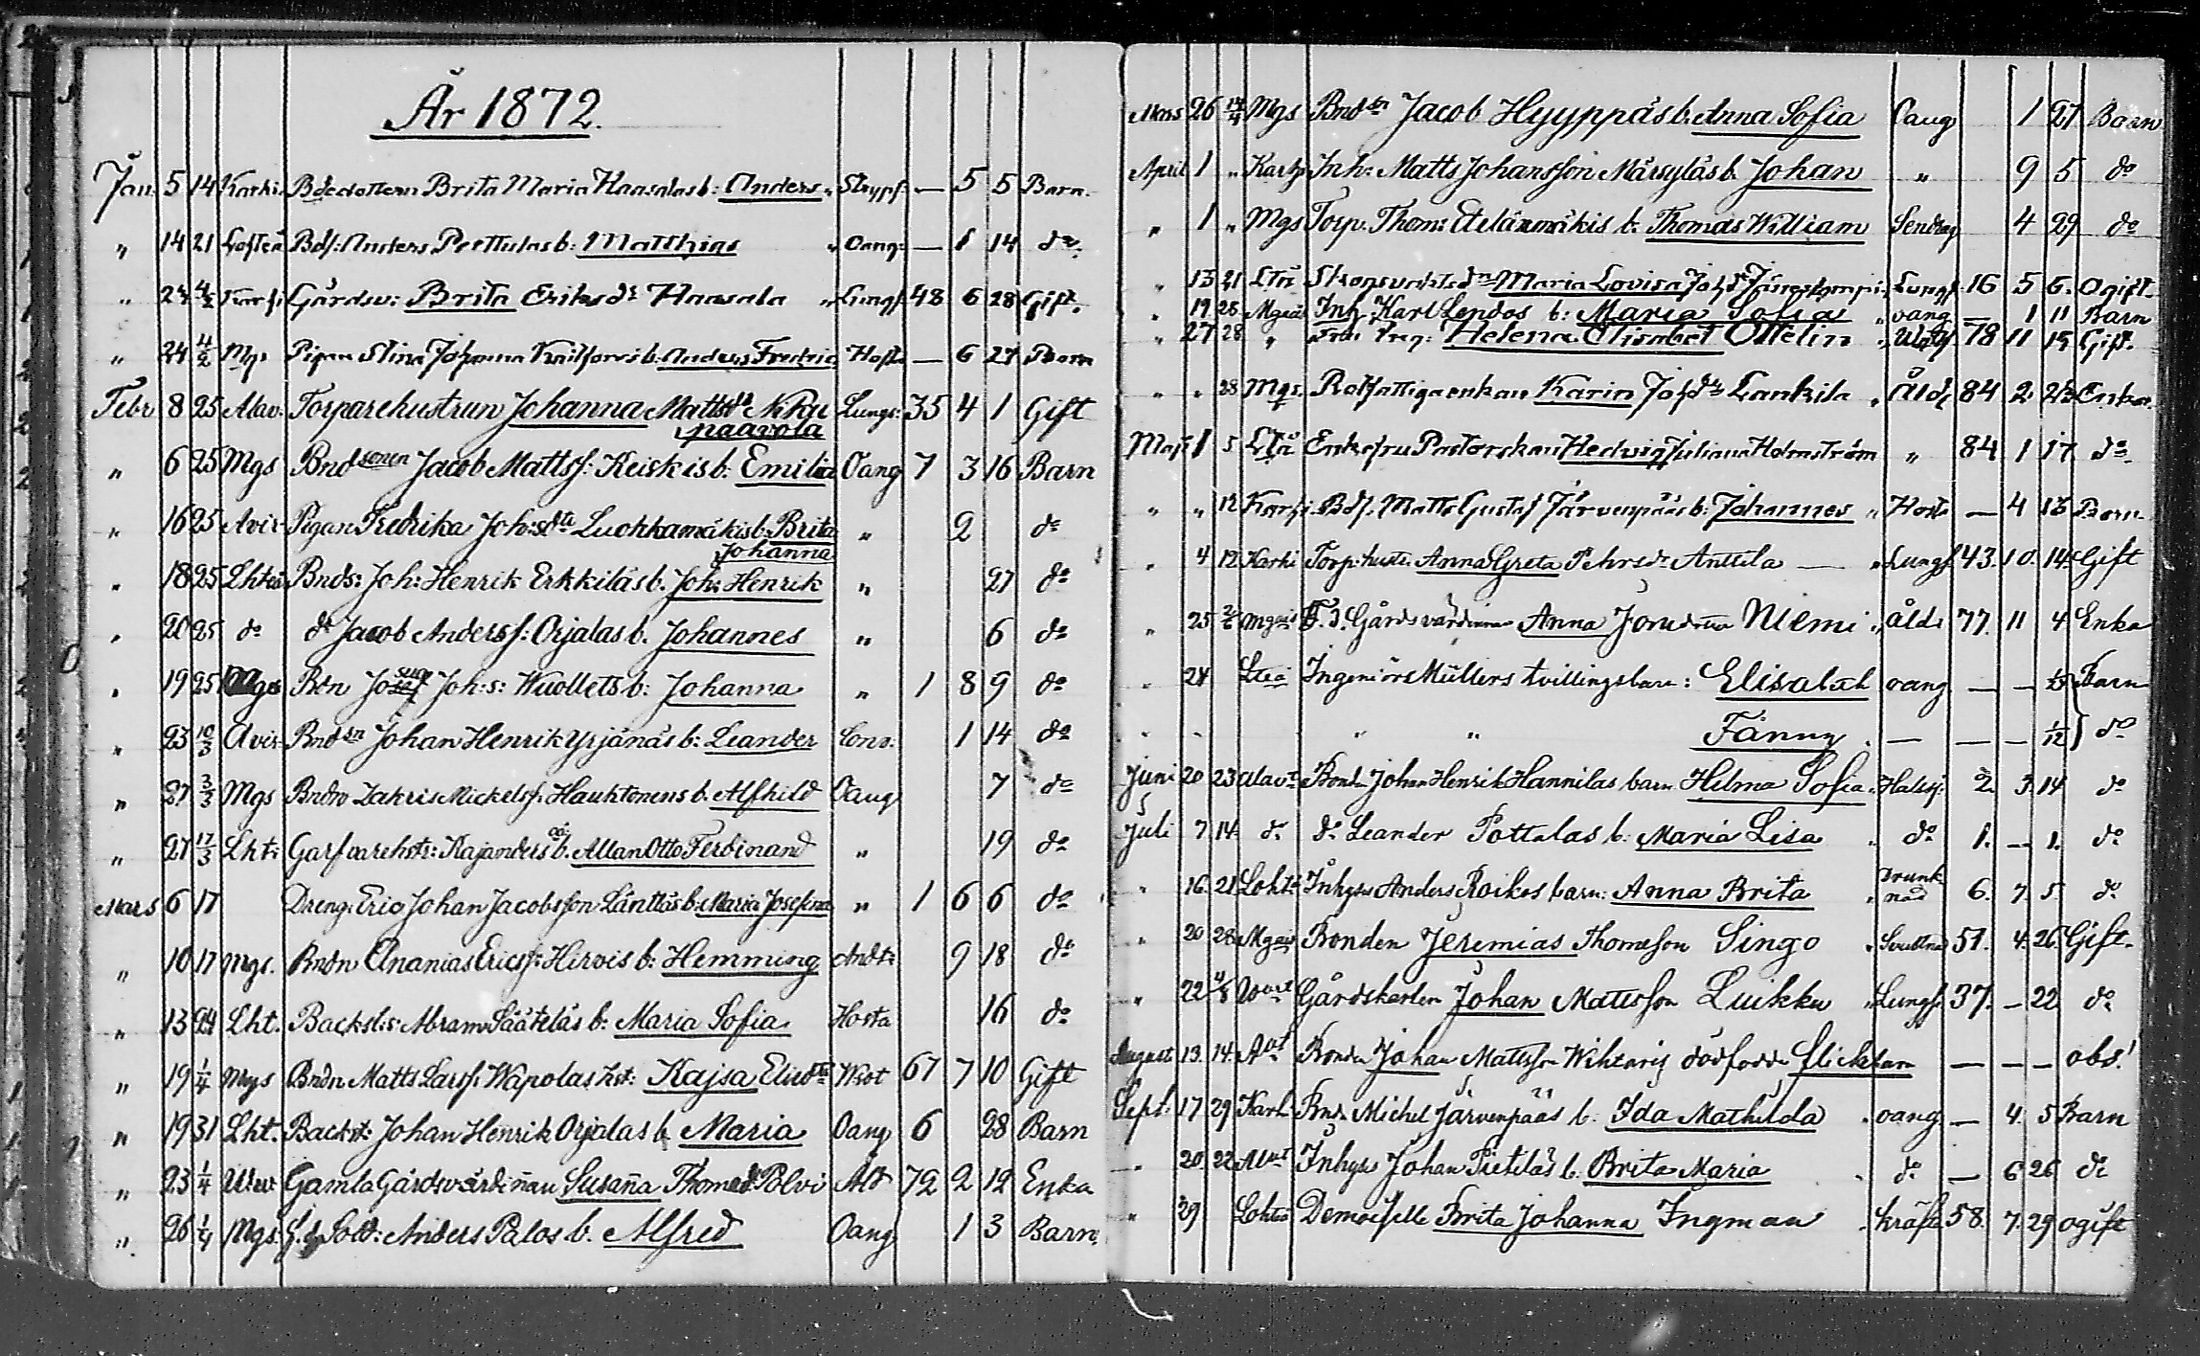 År 1872.
Jan. 5 14 Karhi. Bdedottern Brita Maria Haasalas b: Anders " Strypsj. — 5 5 Barn.
" 14 21 Lohteå Bds: Anders Peettulas b: Matthias " Oang: — 1 14 do
" 24 4/2 Karhi Gårdsv: Brita Eriksdr Haasala " Lungs: 48 6 28 Gift.
" 24 4/2 Mgs Pigan Stina Johanna b. Anders Fredric Hosta — 6 27 Barn
Febr 8 25 Alav: Torparehustrun Johanna Mattsdr Niku Lungs: 35 4 1 Gift
paavola
" 6 25 Mgs Bndsonen Jacob Mattss: Keiskis b: Emilia Oang 7 3 16 Barn
" 16 25 Avir Pigan Fredrika Joh:sdtr Luohkamäkis b. Brita " 2 do
Johanna
" 18 25 Lhteå Bnds: Joh: Henrik Erkkiläs b. Joh: Henrik " 27 do
" 20 25 do do Jacob Anderss: Orjalas b. Johannes " 6 do
" 19 25 Mgs Bdn Josef Joh:s: Wuollets b: Johanna " 1 8 9 do
" 23 10/3 Avir Bndsn Johan Henrik Yrjänäs b: Leander Conv: 1 14 do
" 27 3/3 Mgs Bndn Zakris Mickelss. Hauktonens b. Alfhild Oang 7 do
" 27 17/3 Lht: Garfvarehstr: Kajanders oä b. Allan Otto Ferdinand " 19 do
Mars 6 17 Dreng: Eric Johan Jacobsson Länttäs b. Maria Josefina " 1 6 6 do
" 10 17 Mgs. Bndn Ananias Ericss: Hirvis b: Hemming Andt: 9 18 do
" 13 24 Lht. Backst:s: Abram Sääteläs b: Maria Sofia Hosta 16 do
" 19 1/4 Mgs Bndn Matts Larss: Wapolas hst: Kajsa Wot 67 7 10 Gift
" 19 31 Lht. Backst: Johan Henrik Orjalas b. Maria Oang 6 28 Barn
" 23 1/4 Ulw Gamla Gårdsvärdinnan Susanna Thomedr Polvi Ald 72 2 12 Enka
" 26 1/4 Mgs. Sold: Anders Palos b. Alfred Oang 1 3 Barn.
Mars 26 14/4 Mgs Bndsn Jacob Hyyppäs b. Anna Sofia Oang 1 27 Barn
April 1 " Karhi Inh: Matts Johansson Märsyläs b. Johan " 9 5 do
" 1 " Mgs Torp: Thom: Etelämäkis b. Thomas William Sendrag 4 29 do
" 13 21 Ltå Maria Lovisa Lungs. 16 5 6. Ogift.
" 19 28 Mgså Inh. Karl Lendos b: Maria Sofia " oang — 1 11 Barn
" 27 28 " Helena Elisabet Ottelin " 78 11 15 Gift.
" " 28 Mgs. Rotfattigaenkan Karin Johsdtr Lankila " Åld 84 2 Enka.
Maj 1 5 Ltå Enkefru Pastorskan Hedvig Juliana Holmström " 84 1 17 do
" " 12 Karhi. Bds. Matts Gustaf Järvenpääs b: Johannes " Hosta — 4 13 Barn
" 4 12 Karhi Torp: hustr. Anna Greta Pehrsdr Anttila — " Lungs 43. 10. 14 Gift
" 25 2/6 Mgså F.d. Gårdsvärdinna Anna Niemi " ålds 77. 11 4 Enka
" 24 Lteå Ingeniörs Müllers tvillingsbarn: Elisabeth oang — — Barn
" - " " Fanny . — — — 1/12 do
Juni 20 23 Alavt Bond. Johan Henrik Hannilas barn Hilma Sofia Halssj: 2. 3. 14 do
Juli 7 14 do do Leander Pottalas b. Maria Lisa " do 1. — 1. do
" 16. 21 Loht: Inhyses Anders Roikos barn: Anna Brita " Drunknad 6. 7. 5. do
" 20 28 Mgså Bonden Jeremias Thomsson Singo " 51. 4. 26 Gift.
" 22 4/8 Gårdskarlen Johan Mattsson Luikku " Lungs. 37. — 22 do
August 13. 14. Avt Bondn Johan Mattsson Wihtaris dödfödde flickbarn — — — obs!
Sept. 17 29 Karh. Bnd. Michel Järvenpääs b. Ida Mathilda . oang — 4. 5 Barn
" 20 22 Alavt Inhyse Johan Pieteläs b. Brita Maria . do — 6 26 do
" 29 Lohteå Demoiselle Brita Johanna Ingman . kräfta 58. 7. 29 ogift